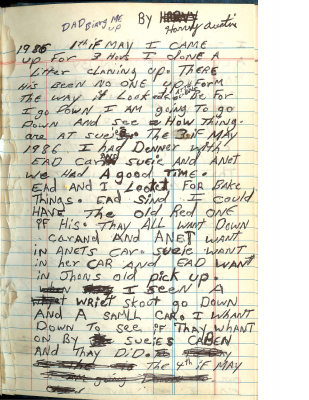 DAD Birry ME BY Harvy austin
UP
1986 1th if MAY I CAME
up For 3 Hors I done A
Litter claning up. THERE
His BEEN NO ONE up Form
THE way it Looked Be For
I go DOWN I AM going To go
Down And see How Thing.
are AT sueie. The 3 if MAY
1986 I had Denner with
EAD Carand sueie and Anet
We HAD A good Time.
EAd And I Looket FOR Bake
Things. EAD Sind I could
HAVE The old Red ONE
IF His. THAY ALL WANT DOWN
Carand AND ANET WANT
in ANETS CAR. sueie WANT
in her CAR AND EAD WANT
in Jhons old pick up.
I seen A
Wriet skout go DOWN
AND A SAMLL CAR. I WHANT
DOWN TO see iF THAY WHANT
ON BY sueies CABEN
AND THAY DID.
The 4th if MAY